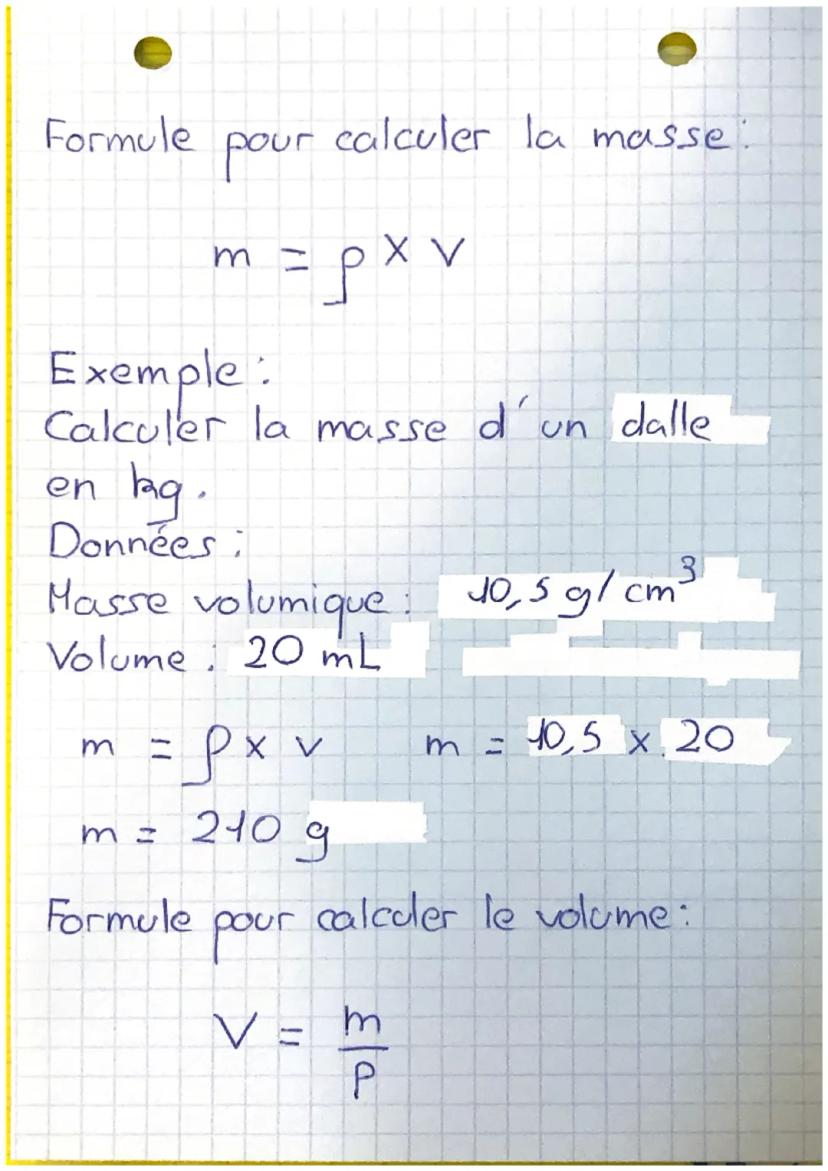 Formule pour calculer la masse:
m = ρ x v
Exemple:
Calculer la masse d'un dalle
en kg.
Données:
Masse volumique: 10,5 g/cm³
Volume: 20 mL
m = ρ x v m = 10,5 x 20
m = 210 g
Formule pour calculer le volume:
V = m/ρ